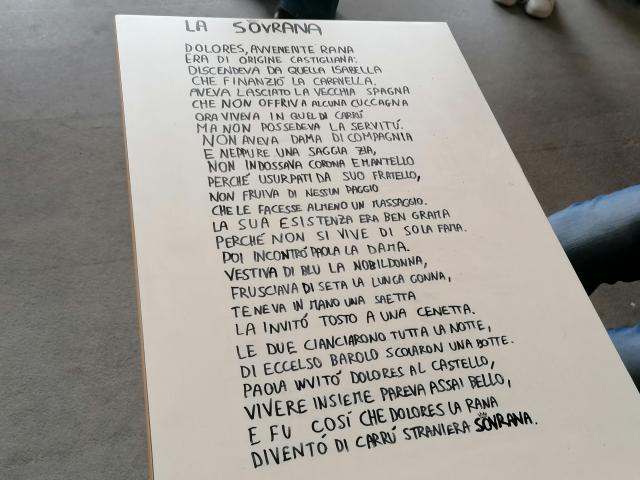 LA SOVRANA
DOLORES, AVVENENTE RANA
ERA DI ORIGINE CASTIGLIANA.
DISCENDEVA DA QUELLA ISABELLA
CHE FINANZIÓ LA CARAVELLA.
AVEVA LASCIATO LA VECCHIA SPAGNA
CHE NON OFFRIVA ALCUNA CUCCAGNA
ORA VIVEVA IN QUEL DI CARRÚ
MA NON POSSEDEVA LA SERVITÚ.
NON AVEVA DAMA DI COMPAGNIA
E NEPPURE UNA SAGGIA ZIA,
NON INDOSSAVA CORONA E MANTELLO
PERCHÉ USURPATI DA SUO FRATELLO,
NON FRUIVA DI NESSUN PAGGIO
CHE LE FACESSE ALMENO UN MASSAGGIO.
LA SUA ESISTENZA ERA BEN GRAMA
PERCHÉ NON SI VIVE DI SOLA FAMA.
POI INCONTRÓ PAOLA LA DAMA.
VESTIVA DI BLU LA NOBILDONNA,
FRUSCIAVA DI SETA LA LUNGA GONNA,
TENEVA IN MANO UNA SAETTA
LA INVITÓ TOSTO A UNA CENETTA.
LE DUE CIANCIARONO TUTTA LA NOTTE,
DI ECCELSO BAROLO SCOLARON UNA BOTTE.
PAOLA INVITÓ DOLORES AL CASTELLO,
VIVERE INSIEME PAREVA ASSAI BELLO,
E FU COSÍ CHE DOLORES LA RANA
DIVENTÓ DI CARRÚ STRANIERA SOVRANA.